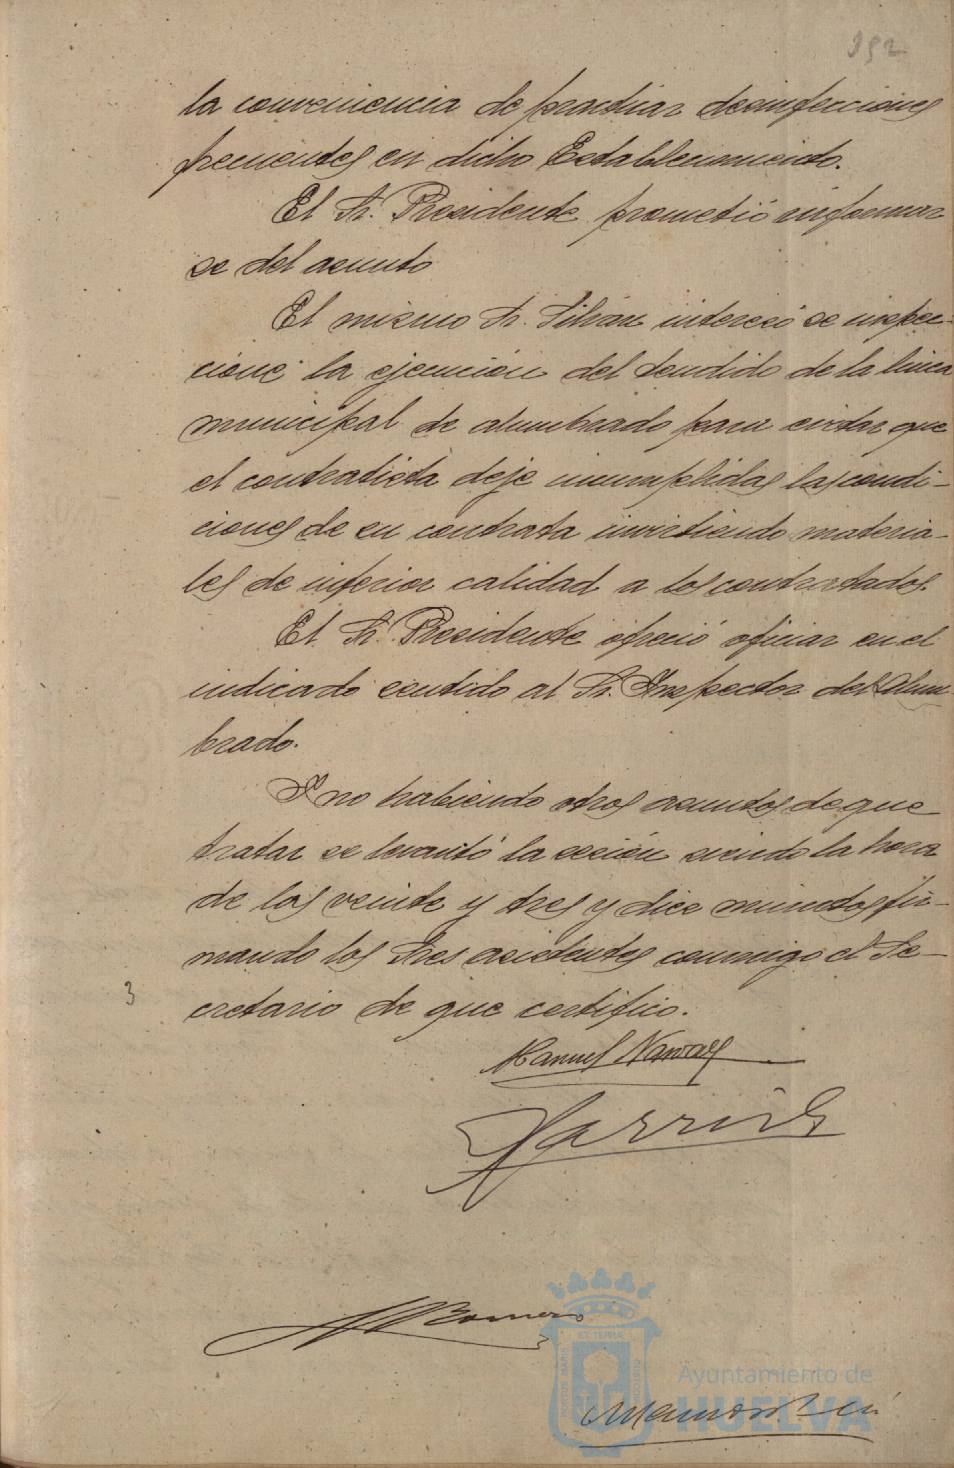 352
la conveniencia de practicar desinfecciones
frecuentes en dicho Establecimiento.
El Sr. Presidente prometió informar
se del asunto
El mismo Sr. Silván interesó se inspec-
cione la ejecución del tendido de la linea
municipal de alumbrado para evitar que
el contratista deje incumplidas las condi-
ciones de su contrata invirtiendo materia-
les de inferior calidad a los contratados.
El Sr. Presidente ofreció oficiar en el
indicado sentido al Sr. Inspector del Alum-
brado.
Y no habiendo otros asuntos de que
tratar se levantó la sesión siendo la hora
de las veinte y tres y diez minutos fir-
mando los Sres asistentes conmigo el Se-
3
cretario de que certifico.
Manuel Navarro
Garrido
Romero
ET TERRAE
PORTUS MARIS
CUSTODIA
Ayuntamiento de
HUELVA